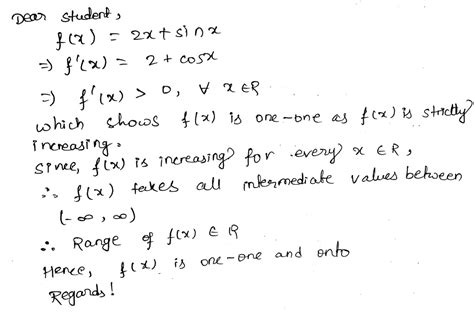 Dear student,
f(x) = 2x + sin x
⇒ f'(x) = 2 + cosx
⇒ f'(x) > 0, ∀ x ∈ R
which shows f(x) is one-one as f(x) is strictly
increasing.
Since, f(x) is increasing for every x ∈ R,
∴ f(x) takes all intermediate values between
(-∞, ∞)
∴ Range of f(x) ∈ R
Hence, f(x) is one-one and onto
Regards!